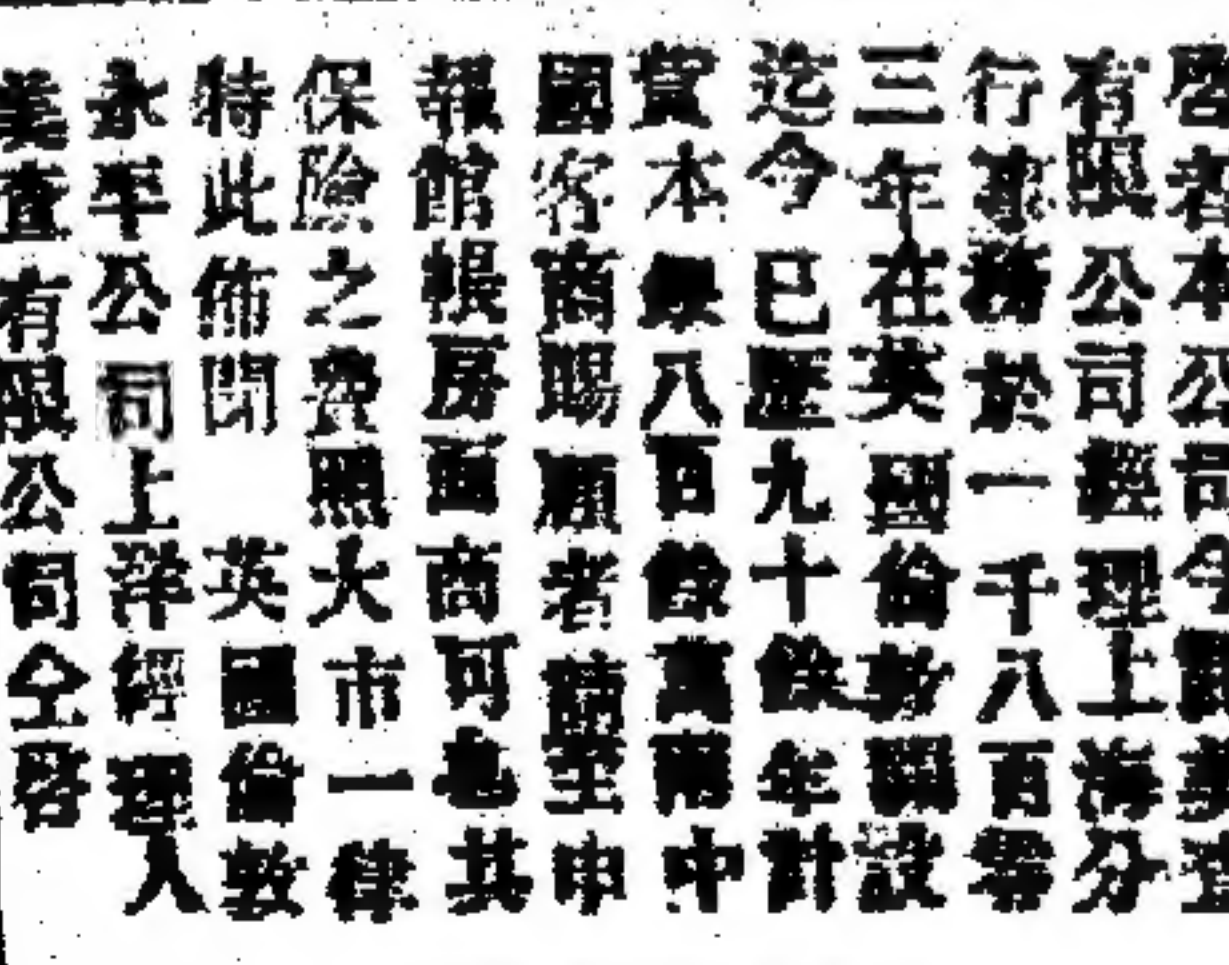 啓者本公司今啟美查
有限公司經理上海分
行事務於一千八百零
三年在英國倫敦開設
迄今已歷九十餘年計
實本銀八百餘萬兩中
國客商賜顧者請至申
報館帳房面商可也其
保險之費照大市一律
特此佈聞 英國倫敦
永平公司上洋經理人
美查有限公司仝啓